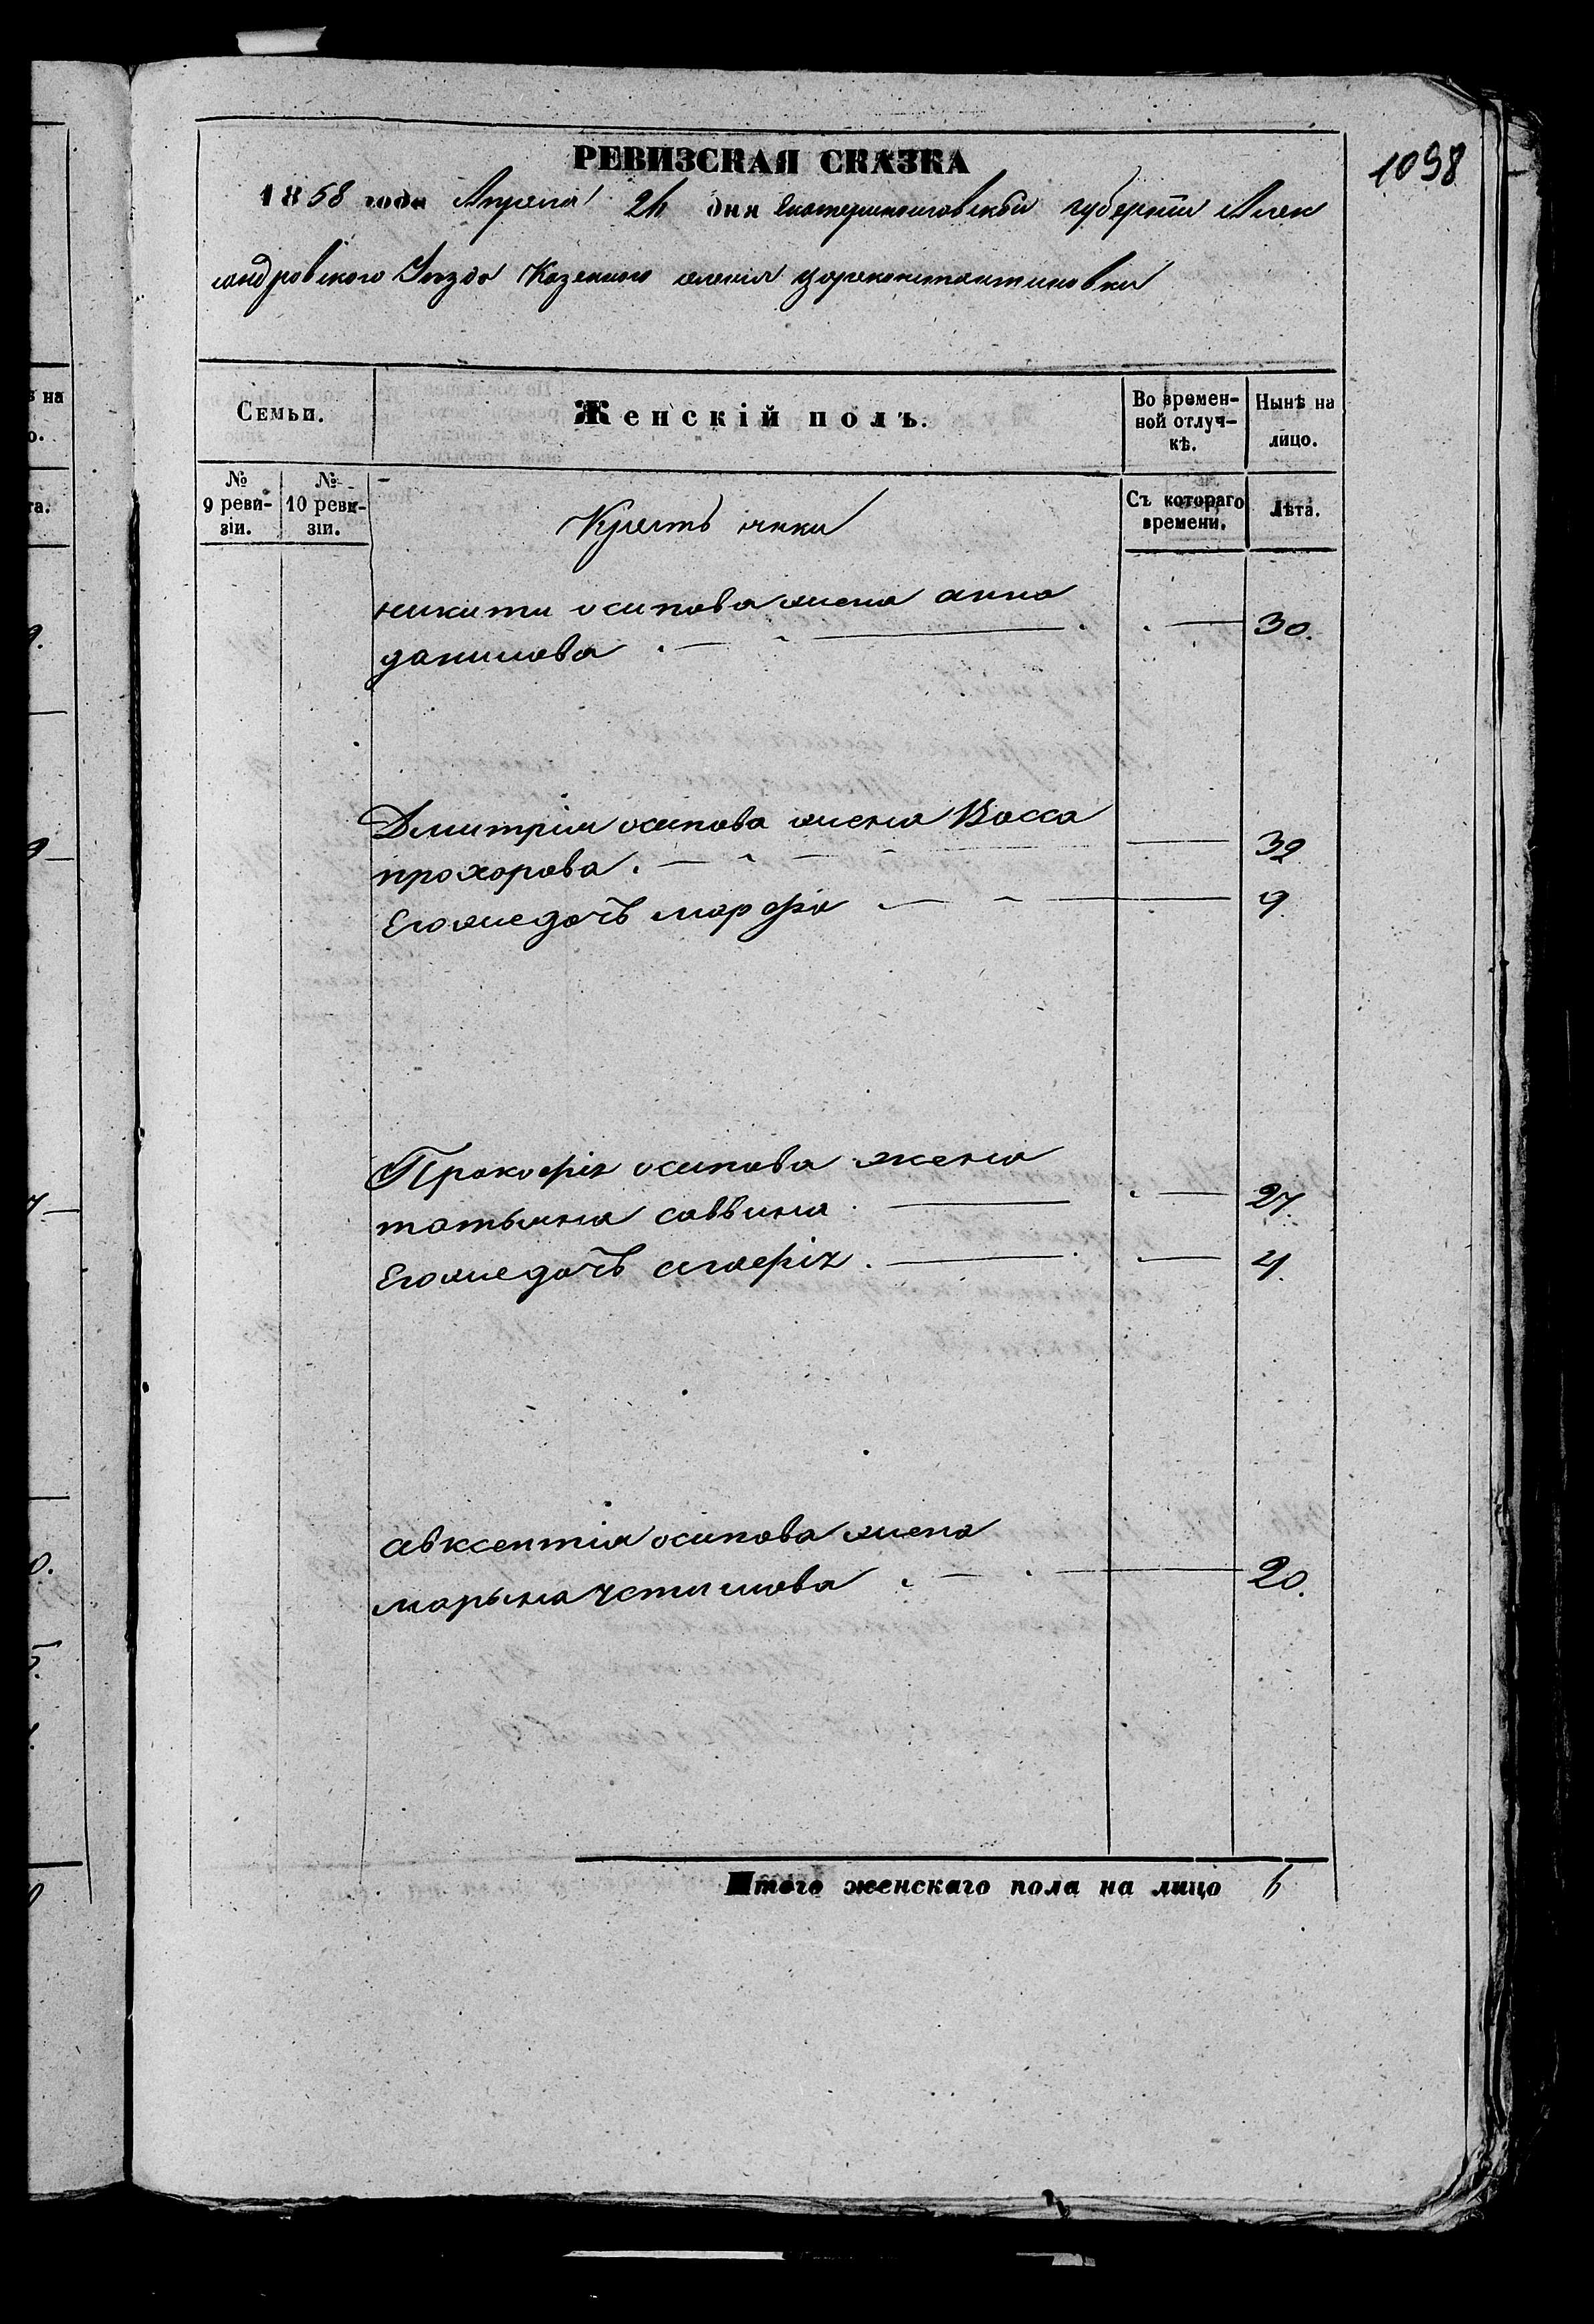 1098
РЕВИЗСКАЯ СКАЗКА
1858 года Апреля 26 дня Екатеринославской губернiи Алек
сандровского Уезда Казенного селенiя Цареконстантиновки
Семьи.
Женскiй полъ.
Во времен-
ной отлуч-
кѣ.
Нынѣ на
лицо.
№
9 реви-
зiи.
№
10 реви-
зiи.
Съ котораго
времени.
Лѣта.
Крестьянки
никити осипова жена анна
данилова 30.
Дмитрiя осипова жена Васса
прохорова. 32
Егожедочъ марфа 9
Прокофiя осипова жена
татьяна саввина 27.
Егожедочъ агафiя. 4.
авксентiя осипова жена
марьяна 20.
Итого женскаго пола на лицо 6